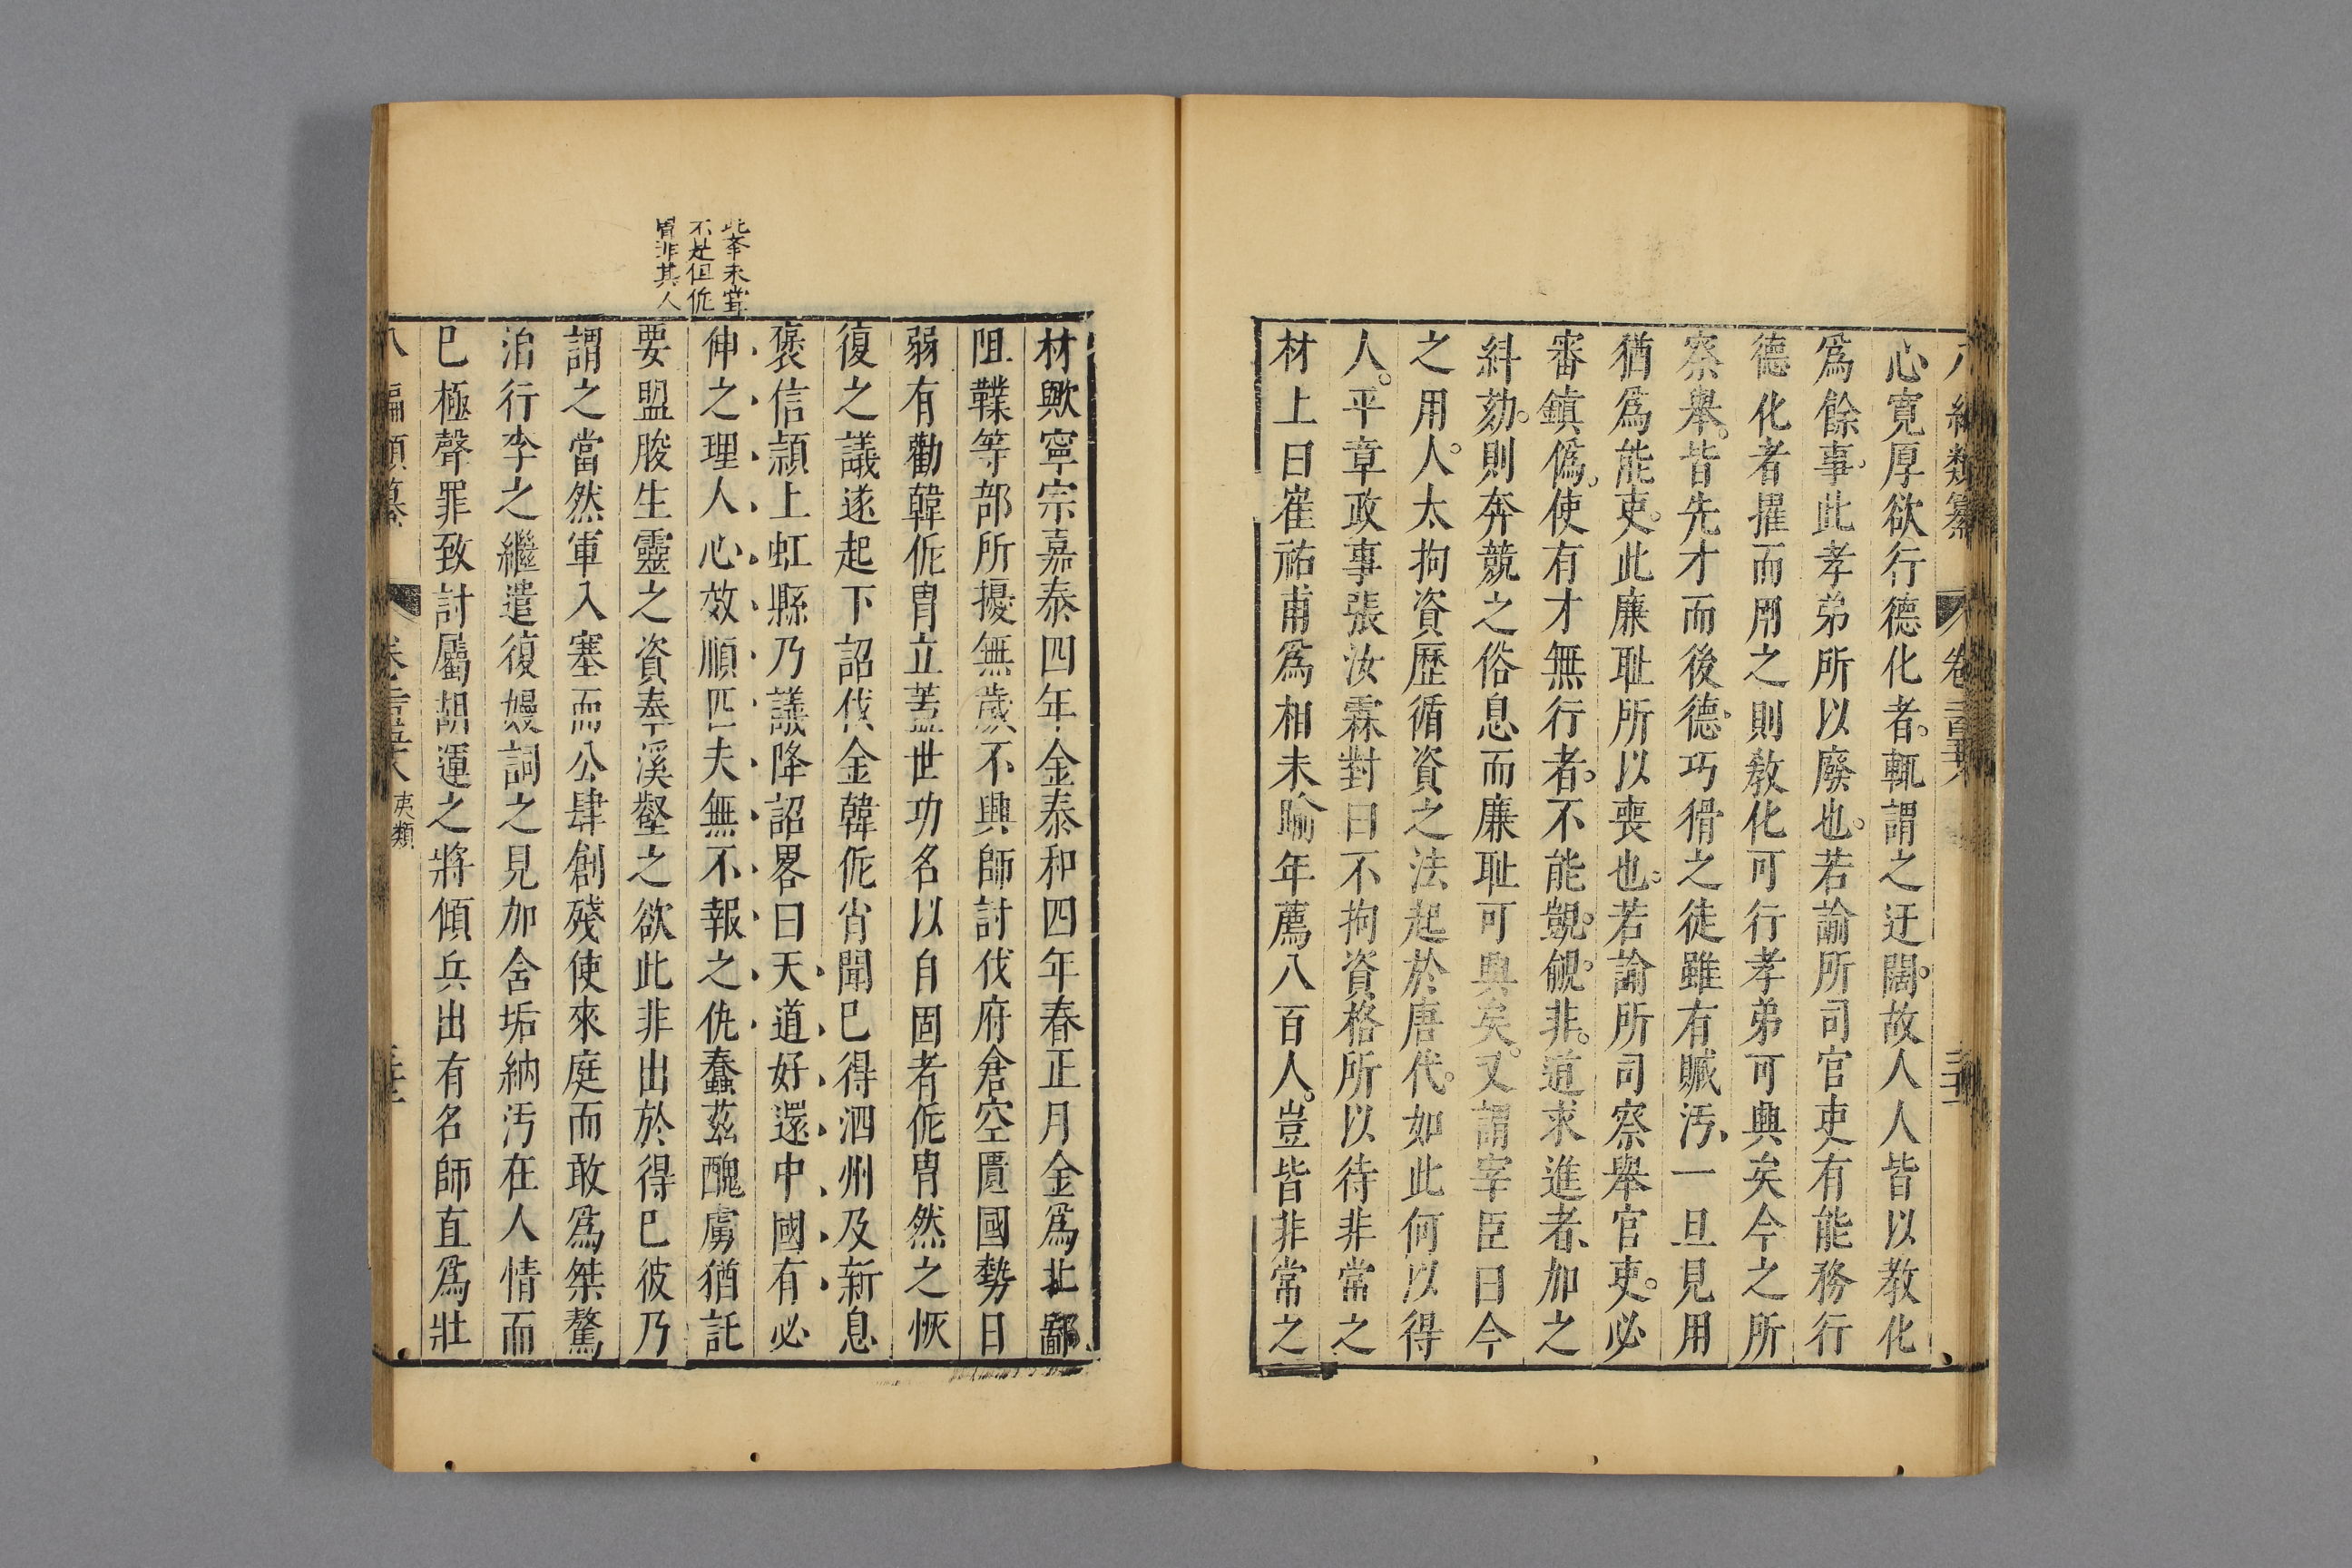 心寬厚欲行德化者輒謂之迂闊故人人皆以教化
爲餘事此孝弟所以廢也若諭所司官吏有能務行
德化者擢而用之則教化可行孝弟可興矣今之所
察舉皆先才而後德巧猾之徒雖有贓汚一旦見用
猶爲能吏此廉耻所以喪也若諭所司察舉官吏必
審鎮僞使有才無行者不能覬覦非道求進者加之
糾劾則奔競之俗息而廉耻可興矣又謂宰臣曰今
之用人太拘資歷循資之法起於唐代如此何以得
人平章政事張汝霖對曰不拘資格所以待非常之
材上曰崔祐甫爲相未踰年薦八百人豈皆非常之
此舉未嘗
不是但侂
冑非其人
材歟寧宗嘉泰四年金泰和四年春正月金爲北鄙
阻䪁等部所擾無歲不興師討伐府倉空匱國勢日
弱有勸韓侂冑立蓋世功名以自固者侂冑然之恢
復之議遂起下詔伐金韓侂冑聞已得泗州及新息
褒信頴上虹縣乃議降詔畧曰天道好還中國有必
伸之理人心效順匹夫無不報之仇蠢茲醜虜猶託
要盟朘生靈之資奉溪壑之欲此非出於得已彼乃
謂之當然軍入塞而公肆創殘使來庭而敢爲桀驁
洎行李之繼遣復嫚詞之見加含垢納汚在人情而
已極聲罪致討屬胡運之將傾兵出有名師直爲壯